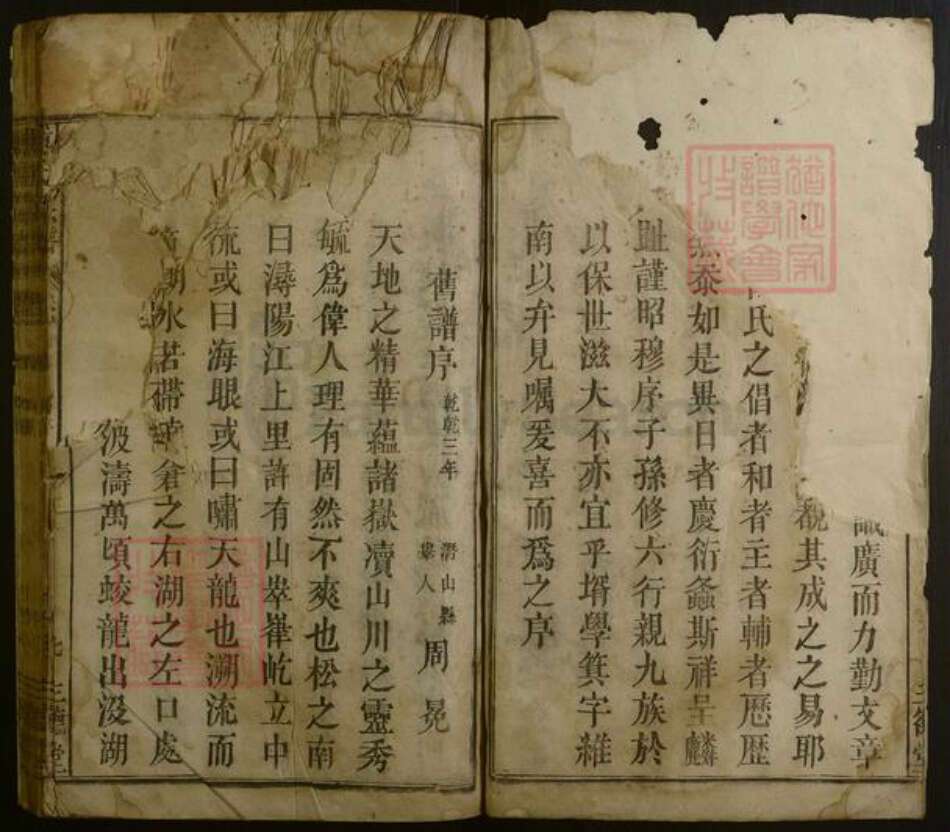 識廣而力勤文章
觀其成之之易耶
氏之倡者和者主者輔者歷歷
泰如是異日者慶衍螽斯祥呈麟
趾謹昭穆序子孫修六行親九族於
以保世滋大不亦宜乎壻學箕字維
南以弁見嘱爰喜而為之序
舊譜序 乾乾三年 潛山縣 舉人 周冕
天地之精華蘊諸嶽凟山川之靈秀
毓為偉人理有固然不爽也松之南
曰潯陽江上里許有山崒嵂屹立中
流或曰海眼或曰嘯天龍也溯流而
湖水若帶 倉之右湖之左口處
波濤萬頃蛟龍出沒湖